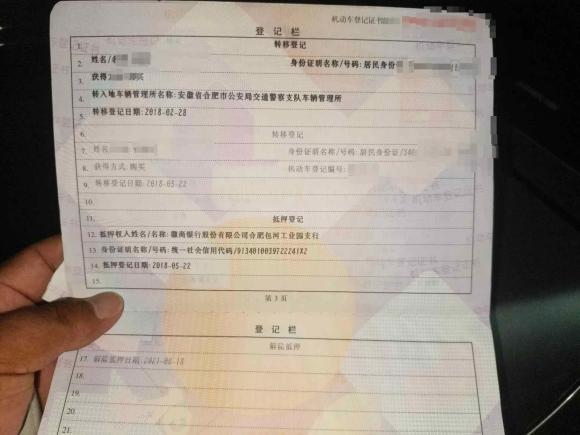 机动车登记证书
登记栏
1. 转移登记
2. 姓名/ 身份证明名称/号码:居民身份
3. 获得 购买
4. 转入地车辆管理所名称:安徽省合肥市公安局交通警察支队车辆管理所
5. 转移登记日期:2018-02-28
6. 转移登记
7. 姓名 身份证明名称/号码:居民身份证/340
8. 获得方式:购买 机动车登记编号:
9. 转移登记日期:2018-05-22
10.
11. 抵押登记
12. 抵押权人姓名/名称:徽商银行股份有限公司合肥包河工业园支行
13. 身份证明名称/号码:统一社会信用代码/9134010039722241X2
14. 抵押登记日期:2018-05-22
15.
第3页
登记栏
解除抵押
17. 解除抵押日期:2021-06-18
18.
19.
20.
21.